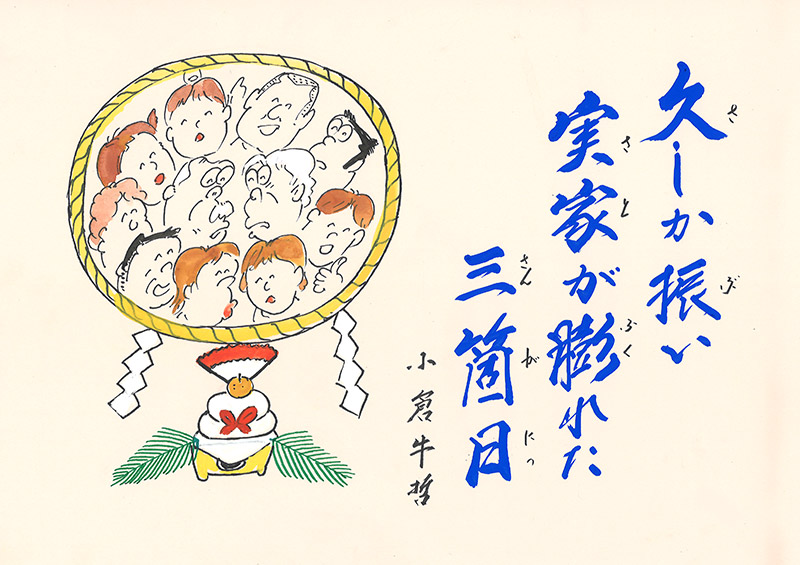 久しか振い
さ ぶ
実家が膨れた
さと ふく
三箇日
さん がにっ
小倉牛哲